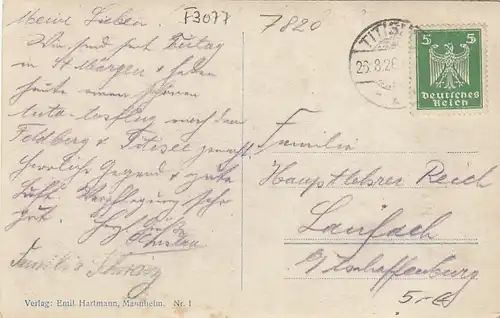 Meine Lieben!
F3077
7820
Wir sind seit Freitag
in St. Märgen & haben
heute einen schönen
Auto-Ausflug nach dem
Feldberg & Titisee gemacht.
Herrliche Gegend & gute
Luft. Verpflegung sehr
gut. Herzl. Grüße
Familie
TITISEE
26.8.26
5 5
Deutsches
Reich
Familie
Hauptlehrer Reich
Laufach
b/Aschaffenburg
5.-€
Verlag: Emil Hartmann, Mannheim. Nr. 1